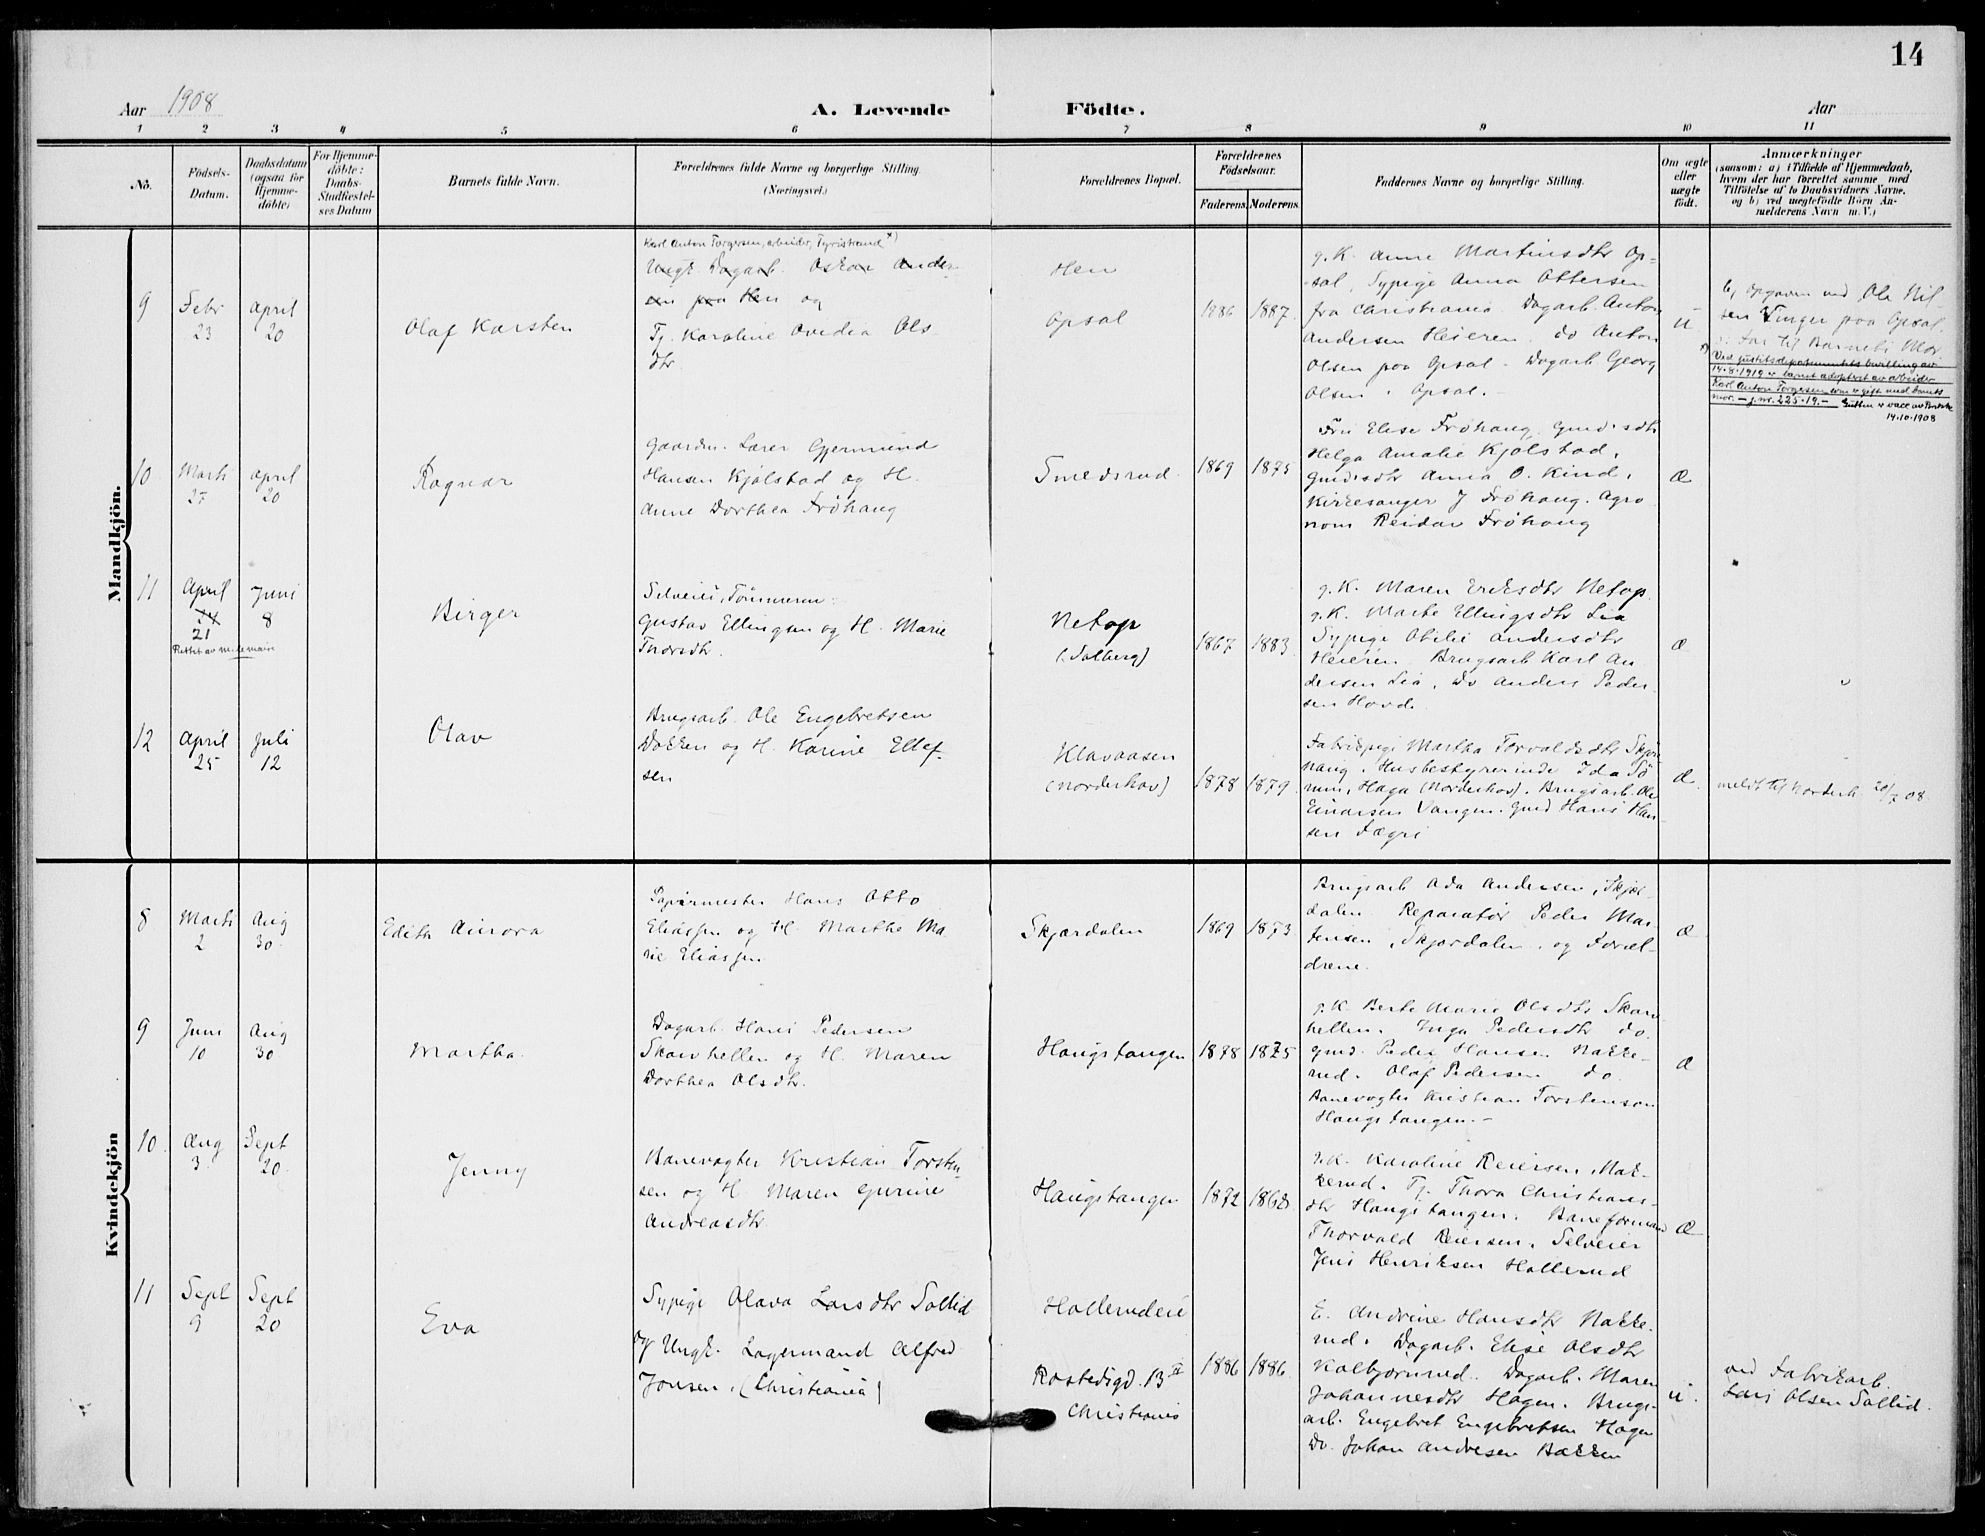 14
Aar 1908
A. Levende Födte.
Aar
1 2 3 4 5 6 7 8 9 10 11
No.
Födsels-
Datum.
Daabsdatum
(ogsaa for
Hjemme-
döbte)
For Hjemme-
döbte:
Daabs-
Stadfæstel-
ses Datum
Barnets fulde Navn.
Forældrenes fulde Navne og borgerlige Stilling.
(Næringsvei.)
Forældrenes Bopæl.
Forældrenes
Födselsaar.
Faderens.
Moderens.
Faddernes Navne og borgerlige Stilling.
Om ægte
eller
uægte
født.
Anmærkninger
(saasom: a) i Tilfælde af Hjemmedaab,
hvem der har forrettet samme med
Tilföielse af to Daabsvidners Navne,
og b) ved uægtefödte Börn An-
melderens Navn m. V.)
Mandkjön.
9
Febr
23
April
20
Olaf Karsten
Karl Anton Torgersen, arbeider, Tyristrand x)
Ungk. Dagarb. Oskar Ander
sen paa Hen og
Tj. Karoline Ovidia Ols
dtr.
Hen
Opsal
1886
1887.
g. K. Anne Martinsdtr Op-
sal, Sypige Anna Ottersen
fra Christiania. Dagarb. Anton
Andersen Heieren. do Anton
Olsen paa Opsal. Dagarb Georg
Olsen, Opsal.
u
b, opgaven ved Ole Nil-
sen Tinger paa Opsal,
Far til Barnets Mor.
x) Ved justitsdepartementets bevilling av
14.8.1919 er barnet adoptert av arbeider
Karl Anton Torgersen som er gift med barnets
mor. - j. nr. 225.19. -
14.10.1908
10
Marts
27
April
20
Ragnar
Gaardm. Lærer Gjermund
Hansen Kjølstad og H.
Anne Dorthea Frøhaug
Smedsrud.
1869
1875
Fru Elise Frøhaug, Gmdsdtr
Helga Amalie Kjølstad,
Gmdsdtr Anna O. Kind,
Kirkesanger J Frøhaug. Agro
nom Reidar Frøhaug
æ
11
April
24
21
Juni
8
Birger
Selveier, Tømmerm:
Gustav Ellingsen og H. Marie
Thorsdtr.
Netop
(Solberg)
1867
1883
g. K. Maren Eriksdtr Netop
g. K. Marte Ellingsdtr Lia
Sypige Otilie Andersdtr
Heieren Brugsarb Karl An
dersen Lia, Do Anders Peder-
sen Hovde.
æ
12
April
25
Juli
12
Olav
Brugsarb. Ole Engebretsen
Dokken og H. Karine Ellef-
sen
Klavaasen
(Norderhov)
1878
1879.
Fabrikpige Martha Torvaldsdtr Skjør
vang, Husbestyrerinde Ida Sö
rum, Haga (Norderhov). Brugsarb. Ole
Einarsen Vangen. Gmd Hans Han-
sen Fægri
æ.
meldt til Norderh. 20/7 08.
Kvindekjön
8
Marts
2
Aug
30.
Edith Aurora
Papirmester Hans Otto
Eliassen og H. Marthe Ma
rie Eliassen
Skjærdalen
1869
1873
Brugsarb Ada Andersen, Skjær-
dalen. Reparatør Peder Mar-
tensen, Skjærdalen, og Foræl-
drene.
æ
9
Juni
10
Aug
30
Martha.
Dagarb. Hans Pedersen
Skarvhellen og H. Maren
Dorthea Olsdtr.
Haugstangen
1878
1875
g. K. Berte Marie Olsdtr Skarv
hellen. Inga Pedersdtr do.
gmd. Peder Hansen Nakke-
rud. Olaf Pedersen do.
Banevogter Kristian Torstensen
Haugstangen. -
æ
10.
Aug
3.
Sept
20.
Jenny
Banevogter Kristian Torsten
sen og H. Maren Gurine
Andreasdtr
Haugstangen
1872
1868.
g. K. Karoline Reiersen, Nak-
kerud. Tj. Thora Christians-
dtr Haugstangen. Baneformand
Thorvald Reiersen, Selveier
Jens Henriksen Hallerud
æ
11
Sept
9
Sept
20
Eva
Sypige Olava Larsdtr Sollid
og Ungk. Lagermand Alfred
Jonsen, (Christiania)
Hallerudeie
Rostedsgd. 13 II
Christiania
1886
1886.
E. Andrine Hansdtr Nakke-
rud. Dagarb. Elise Olsdtr
Kalbjørnrud. Dagarb. Maren
Johannesdtr Hagen. Brugs-
arb. Engebret Engebretsen Hagen
Do. Johan Andresen Bakken
u.
ved Fabrikarb.
Lars Olsen Sollid.